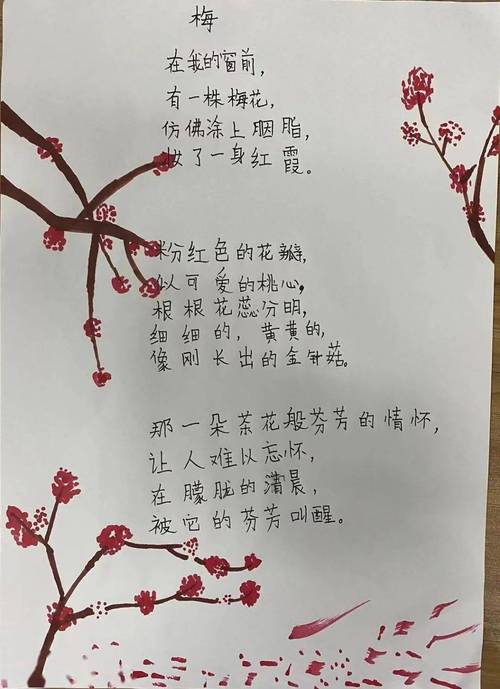 梅
在我的窗前，
有一株梅花，
仿佛涂上胭脂，
妆了一身红霞。
粉红色的花瓣，
似可爱的桃心，
根根花蕊分明，
细细的，黄黄的，
像刚长出的金针菇。
那一朵茶花般芬芳的情怀，
让人难以忘怀，
在朦胧的清晨，
被它的芬芳叫醒。